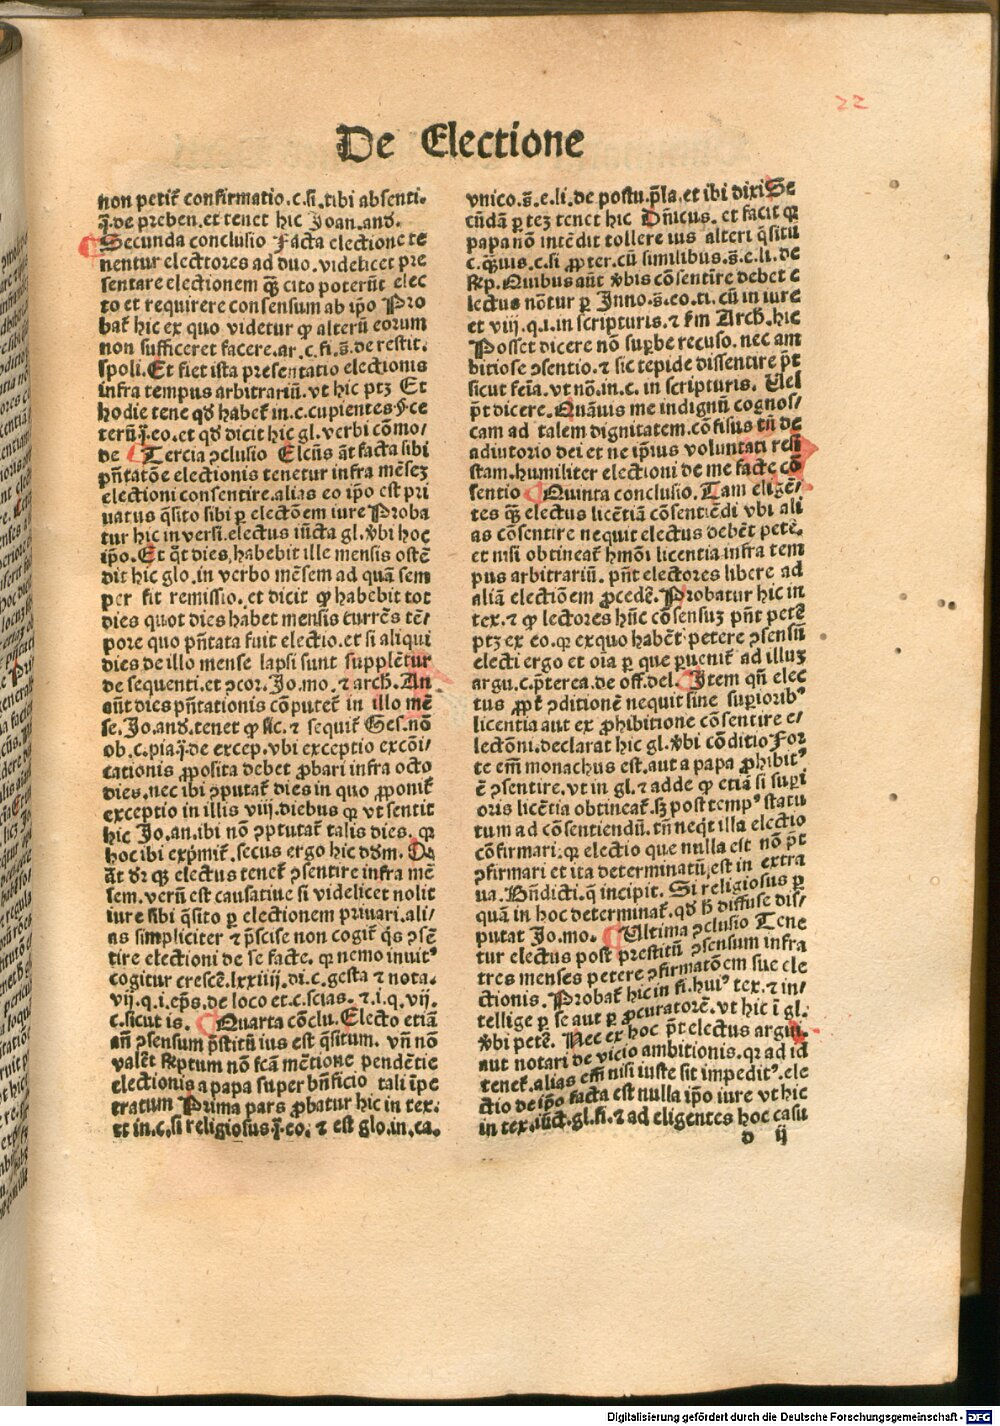 22
De Electione
non petit᷑ confirmatio.c.si.tibi absenti.
q̄.de preben.et tenet hic Joan.and.
Secunda conclusio Facta electione te
nentur electores ad duo.videlicet pre
sentare electionem q̄ȝ cito poterūt elec
to et requirere consensum ab ip̄o Pro
bat᷑ hic ex quo videtur ꝙ alterū eorum
non sufficeret facere.ar.c.fi.s̄.de restit.
spoli.Et fiet ista presentatio electionis
infra tempus arbitrariū.vt hic ptȝ Et
hodie tene qd̄ habet᷑ in.c.cupientes.§.ce
terū.j̄.eo.et qd̄ dicit hic gl.verbi cōmo/
de Tercia ꝯclusio Elect᷑s aūt facta sibi
pn̄tatōe electionis tenetur infra mēseȝ
electioni consentire.alias eo ip̄o est pri
uatus q̄sito sibi ꝑ electōem iure Proba
tur hic in versi.electus iūcta gl.v̄bi hoc
ip̄o.Et q̄t dies,habebit ille mensis ostē
dit hic glo.in verbo mēsem ad quā sem
per fit remissio.et dicit ꝙ habebit tot
dies quot dies habet mensis currēs tē/
pore quo pn̄tata fuit electio.et si aliqui
dies de illo mense lapsi sunt supplētur
de sequenti.et ꝯcor.Jo.mo.⁊ arch.An
aūt dies pn̄tationis cōputet᷑ in illo mē
se.Jo.and.tenet ꝙ sic.⁊ sequit᷑ Ges.nō
ob.c.pia.j̄.de excep.vbi exceptio excōi/
cationis ꝓposita debet ꝓbari infra octo
dies.nec ibi ꝯputat᷑ dies in quo ꝓponit᷑
exceptio in illis viij.diebus ꝙ vt sentit
hic Jo.an.ibi nō ꝯputatur᷑ talis dies. qꝛ
hoc ibi exp̄mit᷑.secus ergo hic dd̄m. Qꝛ
aūt dꝛ qꝙ electus tenet᷑ ꝯsentire infra mē
sem.verū est causatiue si videlicet nolit
iure sibi q̄sito ꝑ electionem priuari.ali/
as simpliciter ⁊ p̄scise non cogit᷑ q̄s ꝯsē
tire electioni de se facte. qꝛ nemo inuitꝰ
cogitur crescē.lxxiiij.di.c.gesta ⁊ nota.
vij.q.i.ep̄s.de loco et.c.scias. ⁊.i.q.vij.
c.sicut is. Quarta cōclu.Electo etiā
an̄ ꝯsensum p̄stitū ius est q̄situm. vn̄ nō
valēt s̄eptum nō fcā mētione pendētie
electionis a papa super bn̄ficio tali īpe
tratum Prima pars ꝓbatur hic in tex.
et in.c.si religiosus.j̄.eo. ⁊ est glo.in.ca.
vnico.s̄.e.li.de postu.p̄la.et ibi dixi Se
cūda ꝑteȝ tenet hic Dn̄icus. et facit qꝛ
papa nō intēdit tollere ius alteri q̄situ
c.quis.c.si ꝓpter.cū similibus.s̄.e.li.de
s̄ep.Quibus aūt v̄bis cōsentire debet e
lectus nōtur ꝑ Inno.s̄.eo.ti.cū in iure
et viij.q.i.in scripturis.⁊ s̄m Arch.hic
Posset dicere nō suꝑbe recuso. nec am
bitiose ꝯsentio.⁊ sic tepide dissentire p̄t
sicut feīa.vt nō.in.c. in scripturis. Vel
p̄t dicere.Quāuis me indignū cognos/
cam ad talem dignitatem.cōfisus tn̄ de
adiutorio dei et ne ip̄ius voluntati resi
stam.humiliter electioni de me facte cō
sentio Quinta conclusio.Tam eligē/
tes q̄ȝ electus licētiā cōsentiēdi vbi ali
as cōsentire nequit electus debēt petē.
et nisi obtineat᷑ hmōi licentia infra tem
pus arbitrariū. pn̄t electores libere ad
aliā electiōem ꝓcedē.Probatur hic in
tex.⁊ ꝙ lectores hn̄c cōsensuȝ pn̄t petē
ptȝ ex eo.qꝛ exquo habēt petere ꝯsensū
electi ergo et oīa ꝑ que ꝑuenit᷑ ad illuȝ
argu.c.p̄terea.de off.del. Item qn̄ elec
tus ꝓpt᷑ ꝯditionē nequit sine superioribꝰ
licentia aut ex ꝓhibitione cōsentire e/
lectōni.declarat hic gl.v̄bi cōditio For
te em̄ monachus est.aut a papa ꝓhibitꝰ
ē ꝯsentire.vt in gl.⁊ adde ꝙ etiā si suꝑi
oris licētia obtineat᷑.sȝ post tempꝰ statu
tum ad cōsentiendū.tn̄ neq̄t illa electio
cōfirmari.qꝛ electio que nulla est nō p̄t
ꝯfirmari et ita determinatū est in extra
ua.Bn̄dicti.q̄ incipit. Si religiosus ꝑ
quā in hoc determinat᷑.qd̄ h̄ diffuse dis/
putat Jo.mo. Ultima ꝯclusio Tene
tur electus post prestitū ꝯsensum infra
tres menses petere ꝯfirmatōem sue ele
ctionis.Probat᷑ hic in fi.huiꝰ tex.⁊ in/
tellige ꝑ se aut ꝑ ꝓcuratorē.vt hic ī gl.
v̄bi petē. Nec ex hoc p̄t electus argui.
aut notari de vicio ambitionis.qꝛ ad id
tenet᷑.alias em̄ nisi iuste sit impeditꝰ.ele
ctio de ip̄o facta est nulla ip̄o iure vt hic
in tex.iūct.gl.fi.⁊ ad eligentes hoc casu
d ij
Digitalisierung gefördert durch die Deutsche Forschungsgemeinschaft - DFG